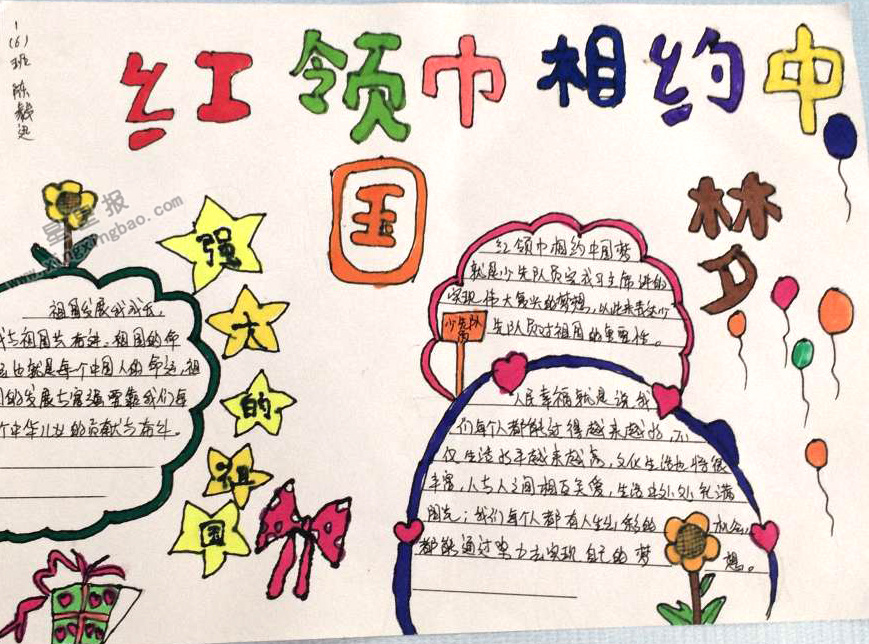 1(6)班 陈毅迅
红领巾相约中
国
梦
星星报
www.xingxingbao.com
强
大
的
祖
国
祖国发展我成长,
我与祖国共奋进。祖国的命
运也就是每个中国人的命运,祖
国的发展与富强要靠我们每
个中华儿女的贡献与奋斗。
红领巾相约中国梦
就是少先队员实我习主席讲的
实现伟大复兴的梦想,以此来表达少
先队员对祖国的重要性。
少先队
员
人民幸福就是说我
们每个人都能过得越来越好,不
仅生活水平越来越高,文化生活也将很
丰富,人与人之间相互关爱,生活中处处充满
阳光;我们每个人都有人生出彩的机会,
都能通过努力去实现自己的梦想。